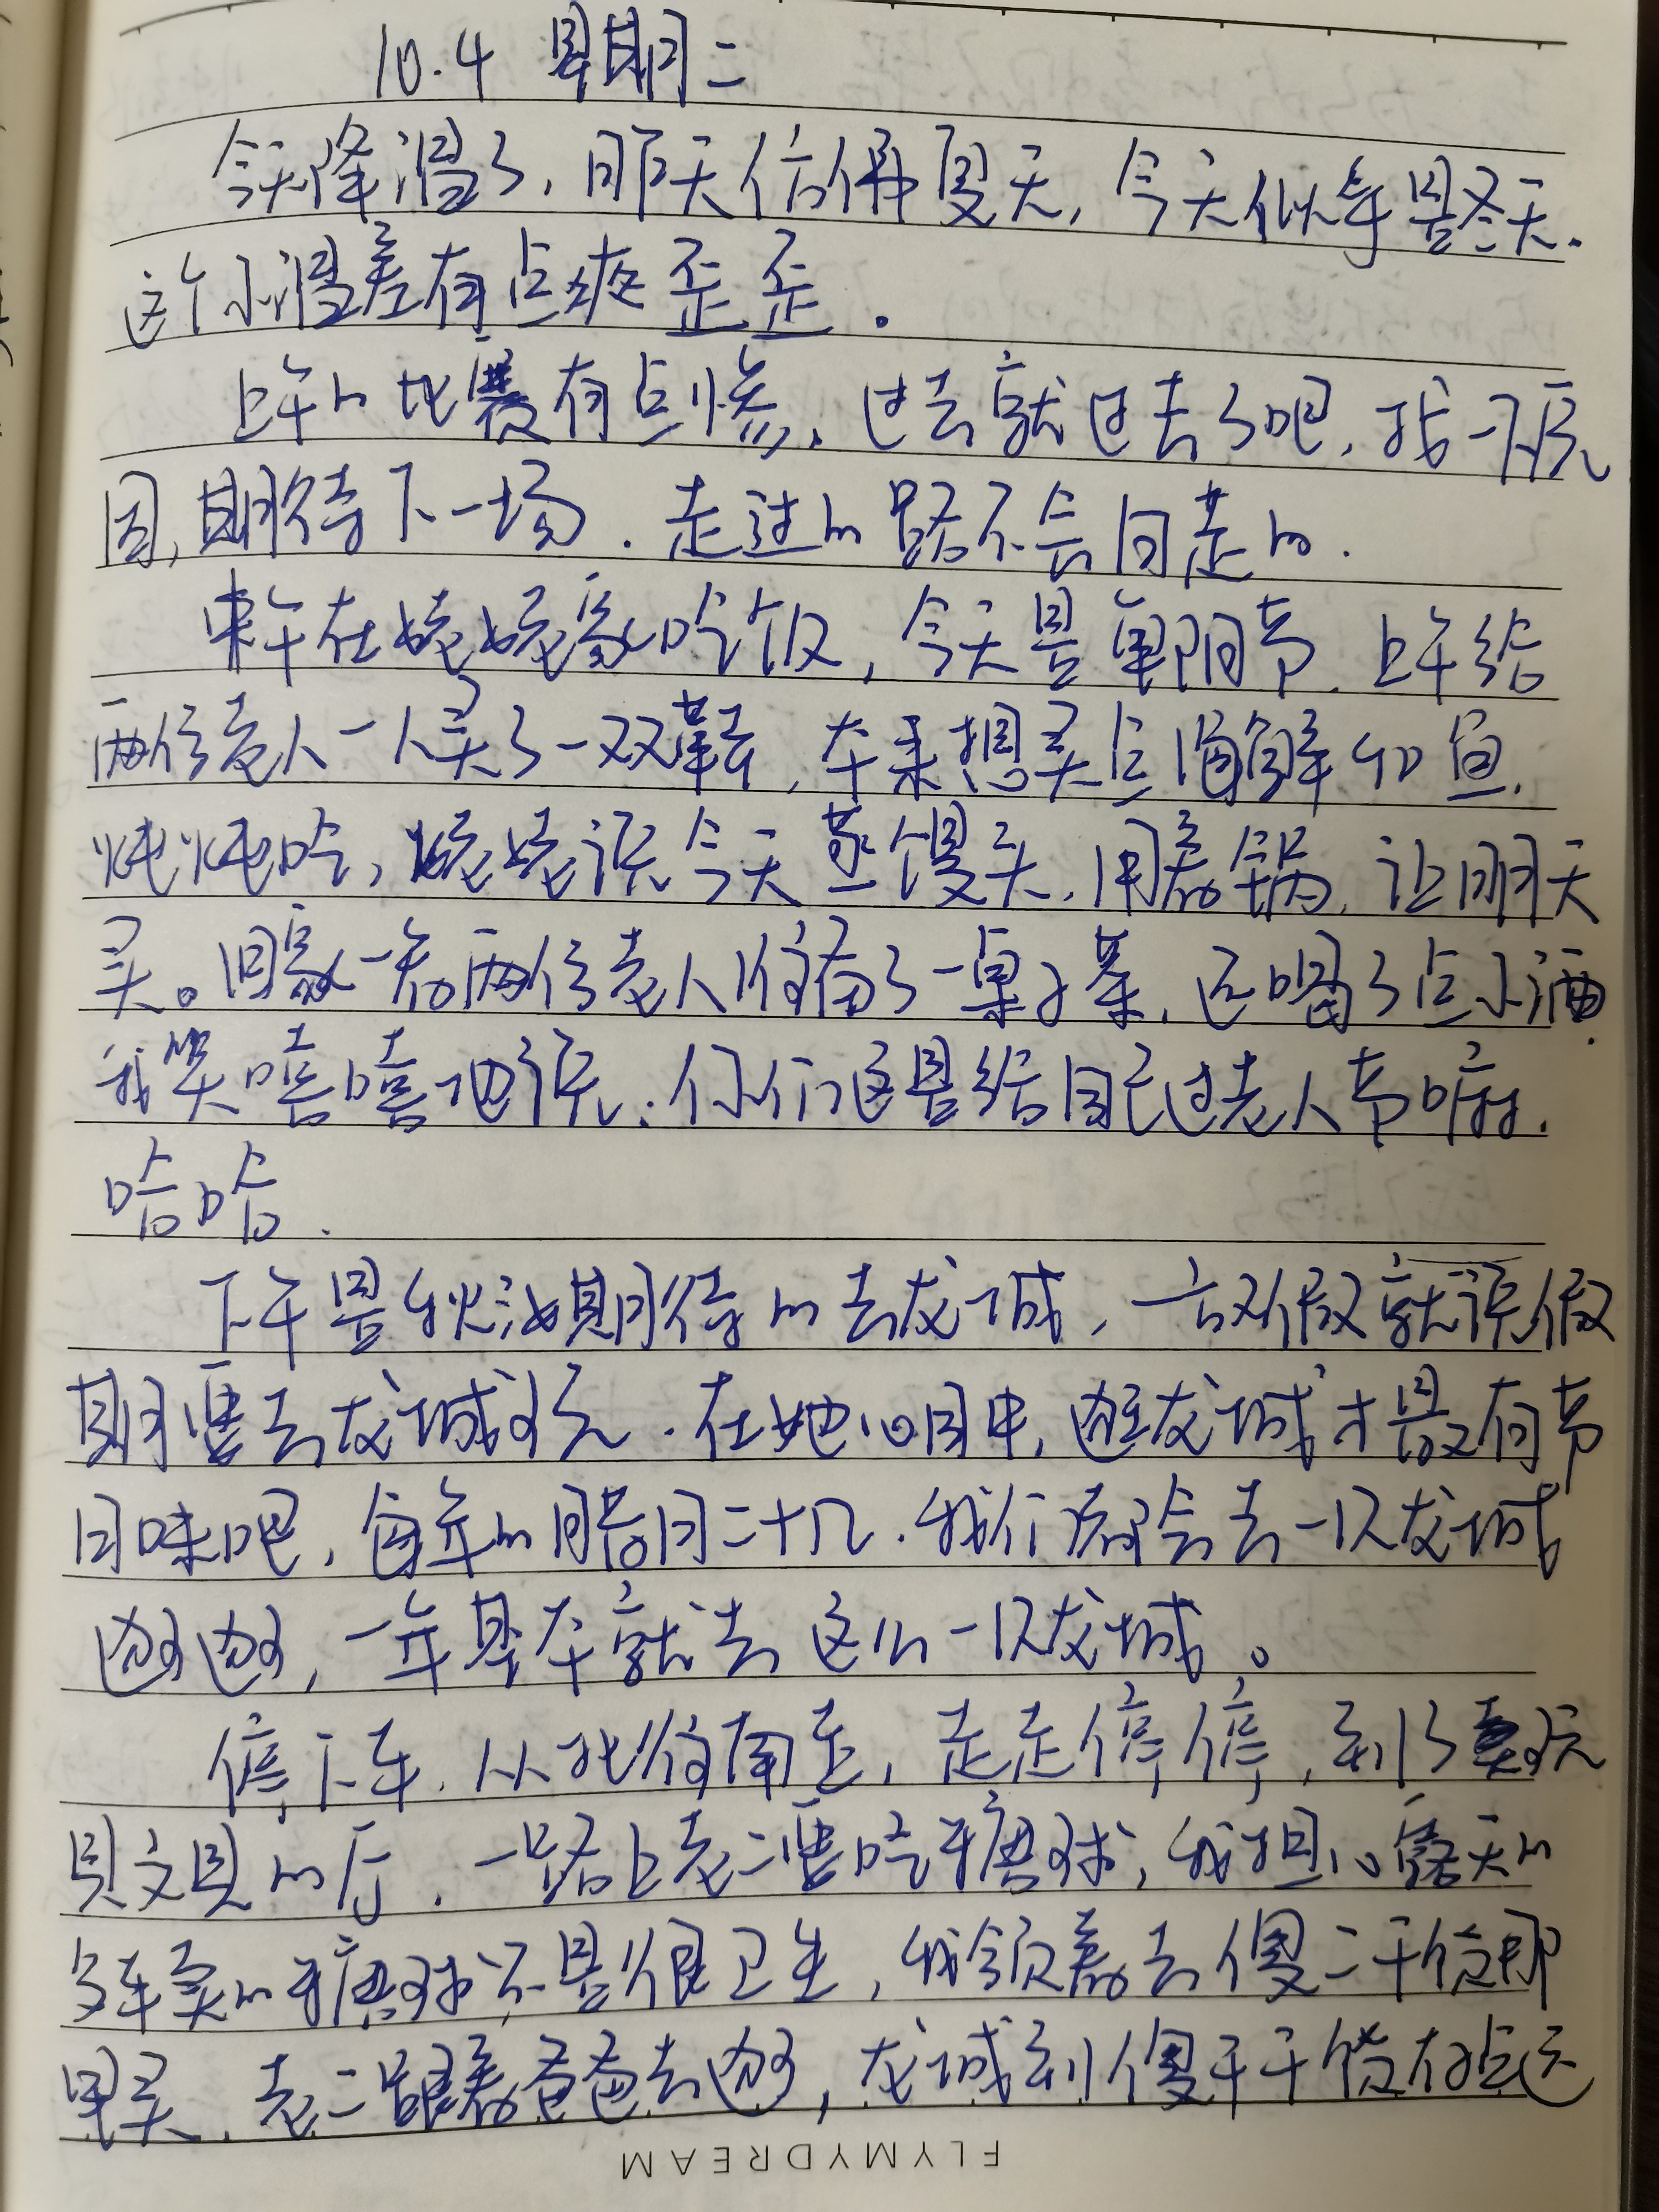 10.4 星期二
今天降温了，昨天仿佛夏天，今天似乎是冬天.
这个小温差有点疵歪歪。
上午的比赛有点惨，过去就过去了吧，找一下原
因，期待下一场．走过的路不会白走的．
中午在姥姥家吃饭，今天是重阳节，上午给
两位老人一人买了一双鞋，本来想买点海鲜和鱼，
炖炖吃，姥姥说今天蒸馒头，用着锅，让明天
买。回家一看两位老人准备了一桌子菜，还喝了点小酒．
我笑嘻嘻地说：你们这是给自己过老人节嘛．
哈哈．
下午是秋汝期待的去龙城，一放假就说假
期要去龙城玩．在她心目中，逛龙城才最有节
日味吧，每年的腊月二十几．我们都会去一次龙城
逛逛，一年基本就去这么一次龙城。
停下车．从北往南走，走走停停，到了卖玩
具文具的厅．一路上老二要吃糖球，我担心露天的
多车卖的糖球不是很卫生，我领着去傻二干货那
里买．老二跟着爸爸去逛，龙城到傻子干货有点远
FLYMYDREAM